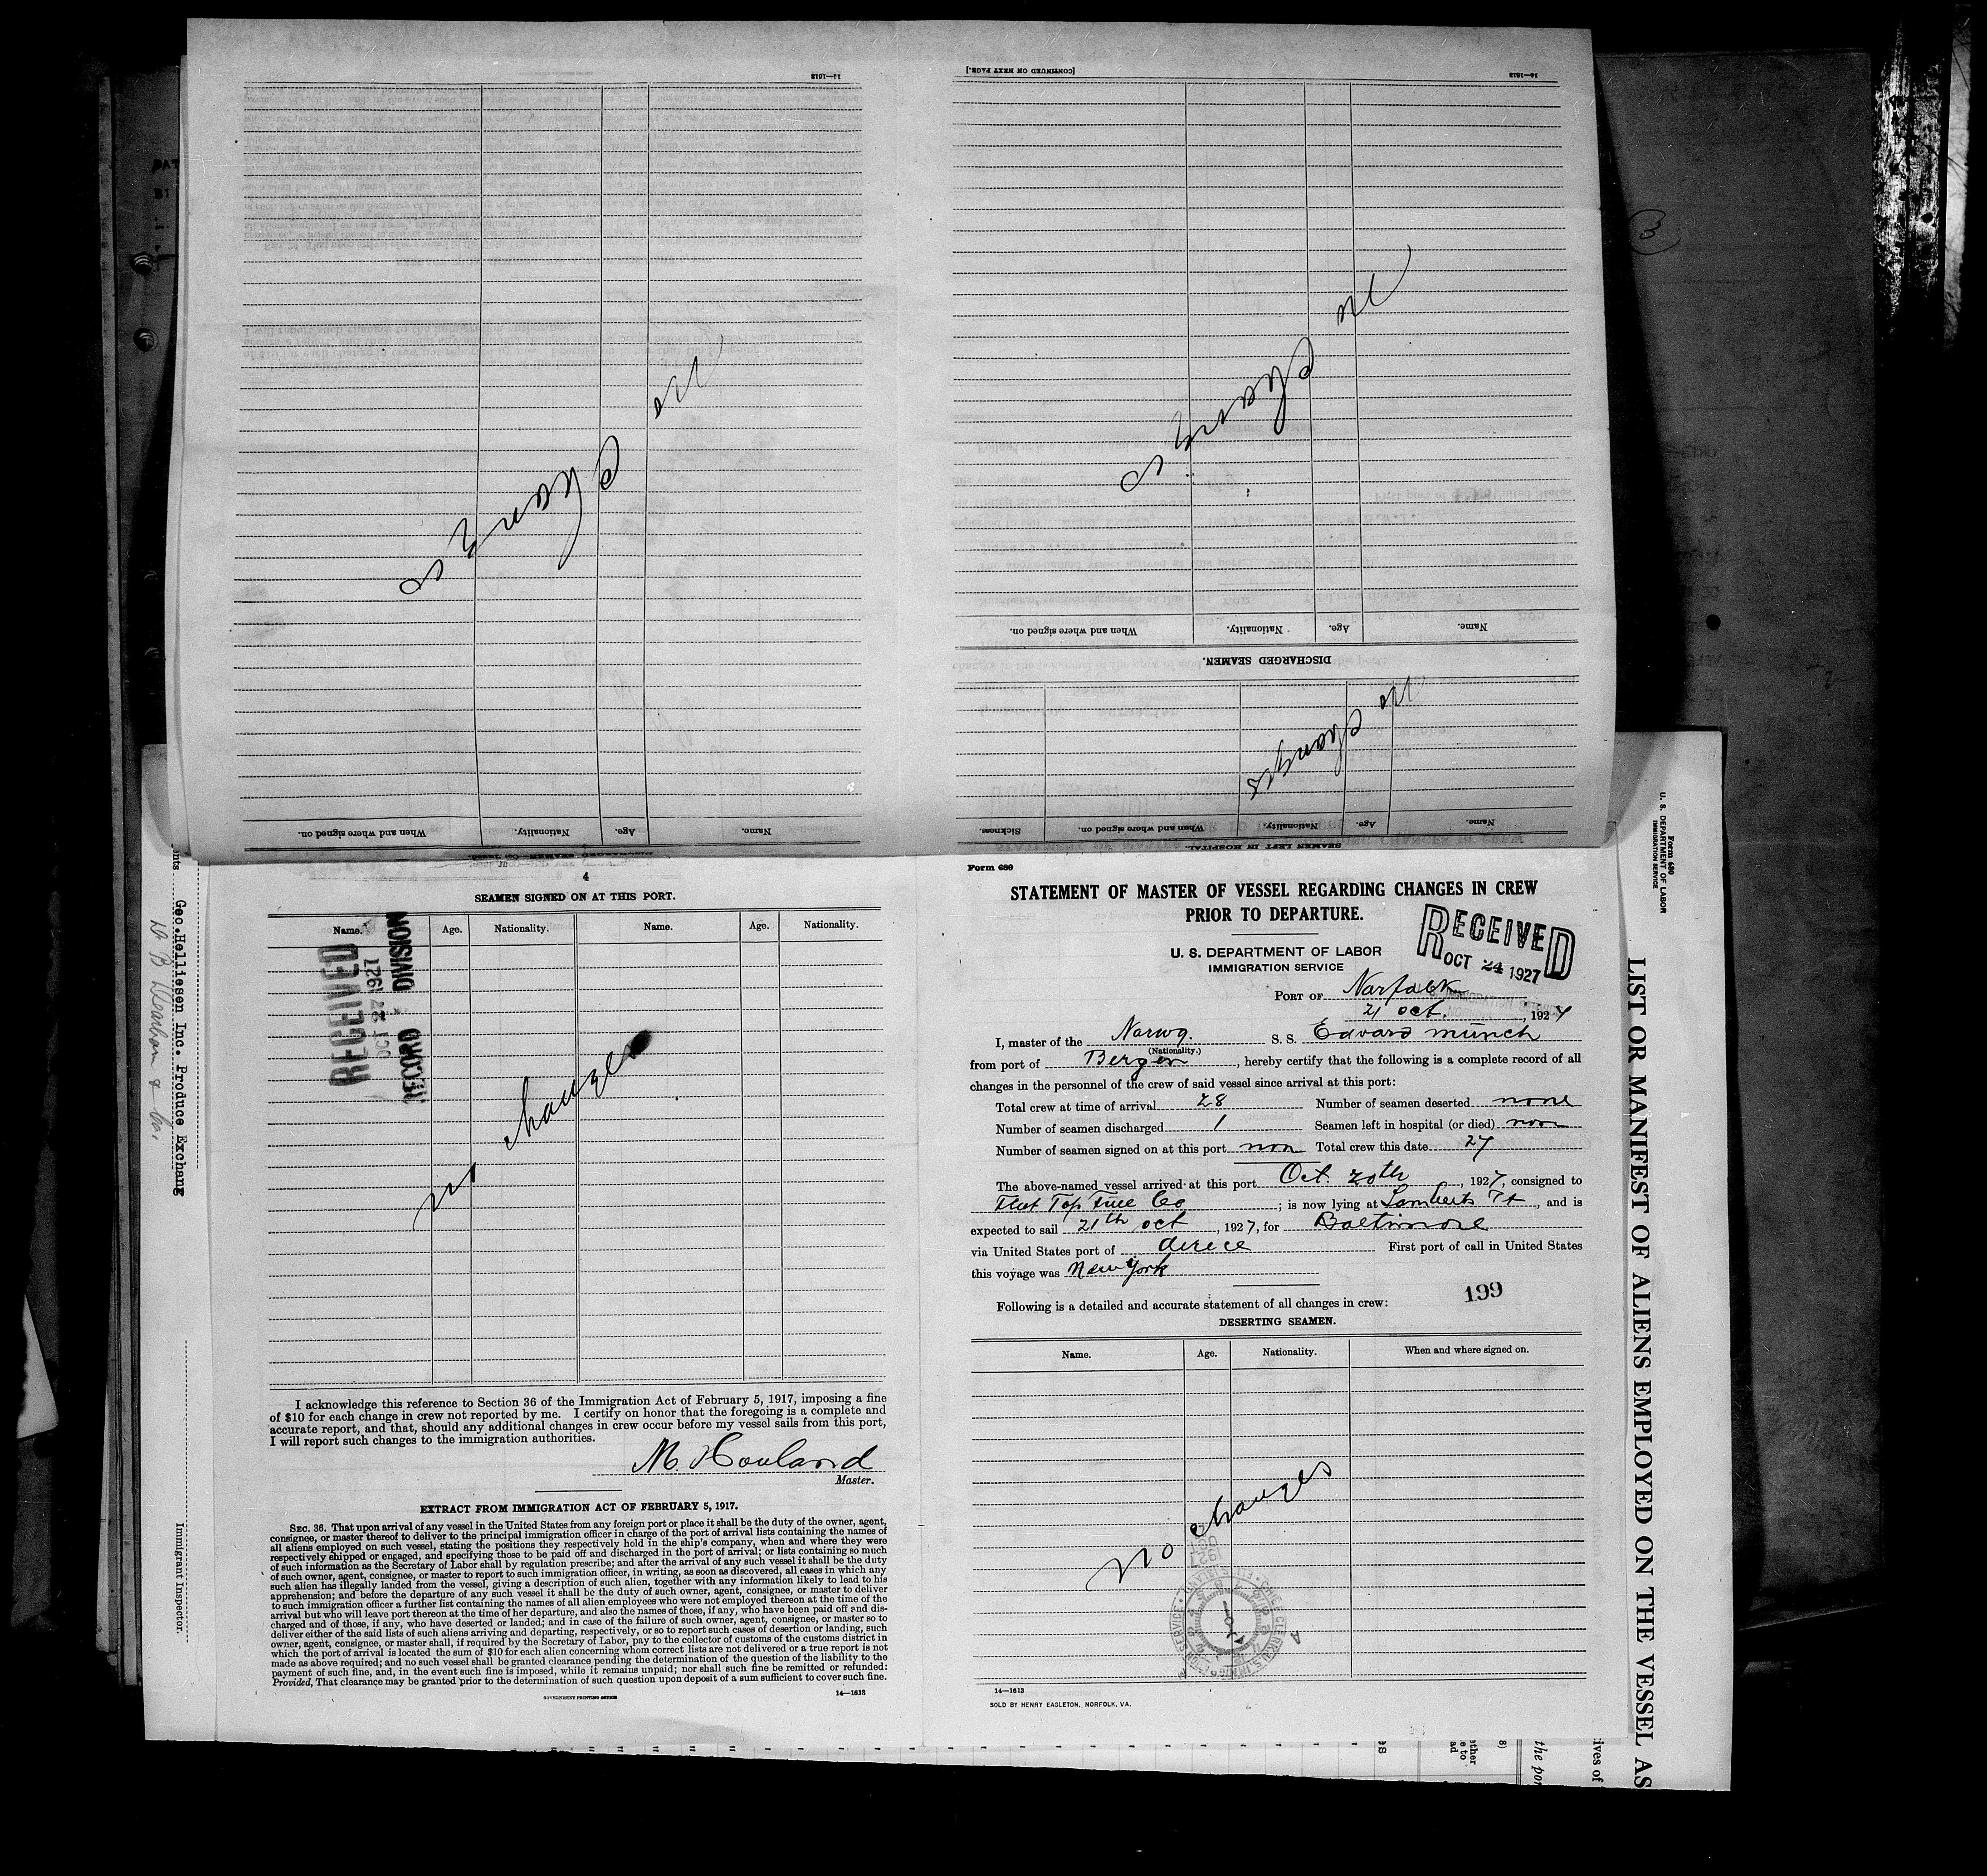 14—1613
[CONTINUED ON NEXT PAGE.]
11—1613
no changes
no changes
Name.
Age.
Nationality.
When and where signed on.
DISCHARGED SEAMEN.
no changes
Name.
Age.
Nationality.
When and where signed on.
Sickness.
SEAMEN LEFT IN HOSPITAL.
Name.
Age.
Nationality.
When and where signed on.
3
4
SEAMEN SIGNED ON AT THIS PORT.
Name. Age. Nationality. Name. Age. Nationality.
RECEIVED
OCT 27 1927
RECORD DIVISION
no changes
I acknowledge this reference to Section 36 of the Immigration Act of February 5, 1917, imposing a fine
of $10 for each change in crew not reported by me. I certify on honor that the foregoing is a complete and
accurate report, and that, should any additional changes in crew occur before my vessel sails from this port,
I will report such changes to the immigration authorities.
M. Houland
Master.
EXTRACT FROM IMMIGRATION ACT OF FEBRUARY 5, 1917.
SEC. 36. That upon arrival of any vessel in the United States from any foreign port or place it shall be the duty of the owner, agent,
consignee, or master thereof to deliver to the principal immigration officer in charge of the port of arrival lists containing the names of
all aliens employed on such vessel, stating the positions they respectively hold in the ship's company, when and where they were
respectively shipped or engaged, and specifying those to be paid off and discharged in the port of arrival; or lists containing so much
of such information as the Secretary of Labor shall by regulation prescribe; and after the arrival of any such vessel it shall be the duty
of such owner, agent, consignee, or master to report to such immigration officer, in writing, as soon as discovered, all cases in which any
such alien has illegally landed from the vessel, giving a description of such alien, together with any information likely to lead to his
apprehension; and before the departure of any such vessel it shall be the duty of such owner, agent, consignee, or master to deliver
to such immigration officer a further list containing the names of all alien employees who were not employed thereon at the time of the
arrival but who will leave port thereon at the time of her departure, and also the names of those, if any, who have been paid off and dis-
charged and of those, if any, who have deserted or landed; and in case of the failure of such owner, agent, consignee, or master so to
deliver either of the said lists of such aliens arriving and departing, respectively, or so to report such cases of desertion or landing, such
owner, agent, consignee, or master shall, if required by the Secretary of Labor, pay to the collector of customs of the customs district in
which the port of arrival is located the sum of $10 for each alien concerning whom correct lists are not delivered or a true report is not
made as above required; and no such vessel shall be granted clearance pending the determination of the question of the liability to the
payment of such fine, and, in the event such fine is imposed, while it remains unpaid; nor shall such fine be remitted or refunded:
Provided, That clearance may be granted prior to the determination of such question upon deposit of a sum sufficient to cover such fine.
GOVERNMENT PRINTING OFFICE
14—1613
Form 689
STATEMENT OF MASTER OF VESSEL REGARDING CHANGES IN CREW
PRIOR TO DEPARTURE.
U. S. DEPARTMENT OF LABOR
IMMIGRATION SERVICE
RECEIVED
OCT 24 1927
PORT OF Norfolk
21 oct., 1927
I, master of the Norwg. S. S. Edvard Münch
(Nationality.)
from port of Bergen, hereby certify that the following is a complete record of all
changes in the personnel of the crew of said vessel since arrival at this port:
Total crew at time of arrival 28 Number of seamen deserted none
Number of seamen discharged 1 Seamen left in hospital (or died) non
Number of seamen signed on at this port non Total crew this date 27
The above-named vessel arrived at this port Oct. 20th, 1927, consigned to
Flat Top Fuel Co; is now lying at Lamberts Pt, and is
expected to sail 21th oct, 1927, for Baltimore
via United States port of First port of call in United States
this voyage was New York
199
Following is a detailed and accurate statement of all changes in crew:
DESERTING SEAMEN.
Name. Age. Nationality. When and where signed on.
no changes
14—1613
SOLD BY HENRY EAGLETON, NORFOLK, VA.
Geo. Helliesen Inc. Produce Exchang
Immigrant Inspector.
Form 680
U. S. DEPARTMENT OF LABOR
IMMIGRATION SERVICE
LIST OR MANIFEST OF ALIENS EMPLOYED ON THE VESSEL AS